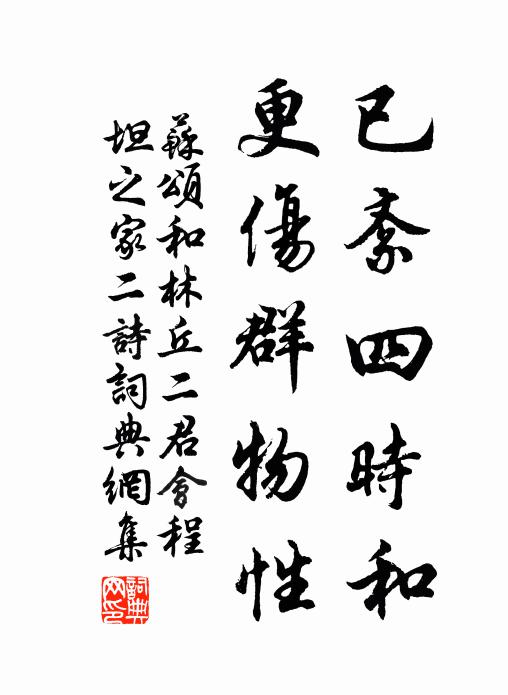 已紊四時和
更傷群物性
蘇頌和林丘二君會程
坦之家二詩詞典網集